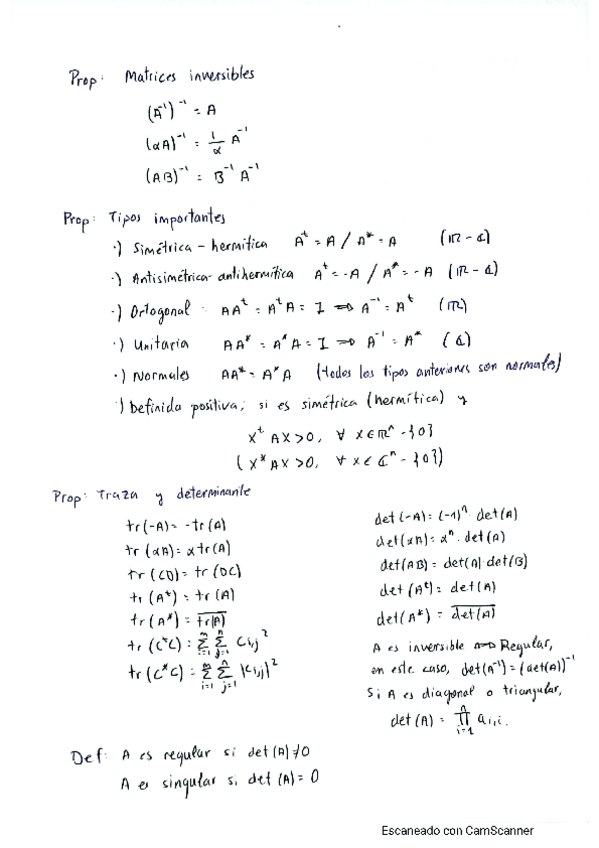 Prop: Matrices inversibles
(A⁻¹)⁻¹ = A
(αA)⁻¹ = 1/α A⁻¹
(AB)⁻¹ = B⁻¹ A⁻¹
Prop: Tipos importantes
·) Simétrica - hermítica Aᵗ = A / A* = A (ℝ - ℂ)
·) Antisimétrica - antihermítica Aᵗ = -A / A* = -A (ℝ - ℂ)
·) Ortogonal: AAᵗ = AᵗA = I ⟹ A⁻¹ = Aᵗ (ℝ)
·) Unitaria AA* = A*A = I ⟹ A⁻¹ = A* (ℂ)
·) Normales AA* = A*A (todos los tipos anteriores son normales)
·) Definida positiva; si es simétrica (hermítica) y
xᵗAx > 0, ∀ x ∈ ℝⁿ - {0}
(x*Ax > 0, ∀ x ∈ ℂⁿ - {0})
Prop: Traza y determinante
tr(-A) = -tr(A)
tr(αA) = α tr(A)
tr(CD) = tr(DC)
tr(Aᵗ) = tr(A)
tr(A*) = \overline{tr(A)}
tr(CᵗC) = ∑_{i=1}^{m} ∑_{j=1}^{n} c_{i,j}²
tr(C*C) = ∑_{i=1}^{m} ∑_{j=1}^{n} |c_{i,j}|²
det(-A) = (-1)ⁿ · det(A)
det(αA) = αⁿ · det(A)
det(AB) = det(A) · det(B)
det(Aᵗ) = det(A)
det(A*) = \overline{det(A)}
A es inversible ⟺ Regular,
en este caso, det(A⁻¹) = (det(A))⁻¹
Si A es diagonal o triangular,
det(A) = ∏_{i=1}^{n} a_{i,i}.
Def: A es regular si det(A) ≠ 0
A es singular si det(A) = 0
Escaneado con CamScanner